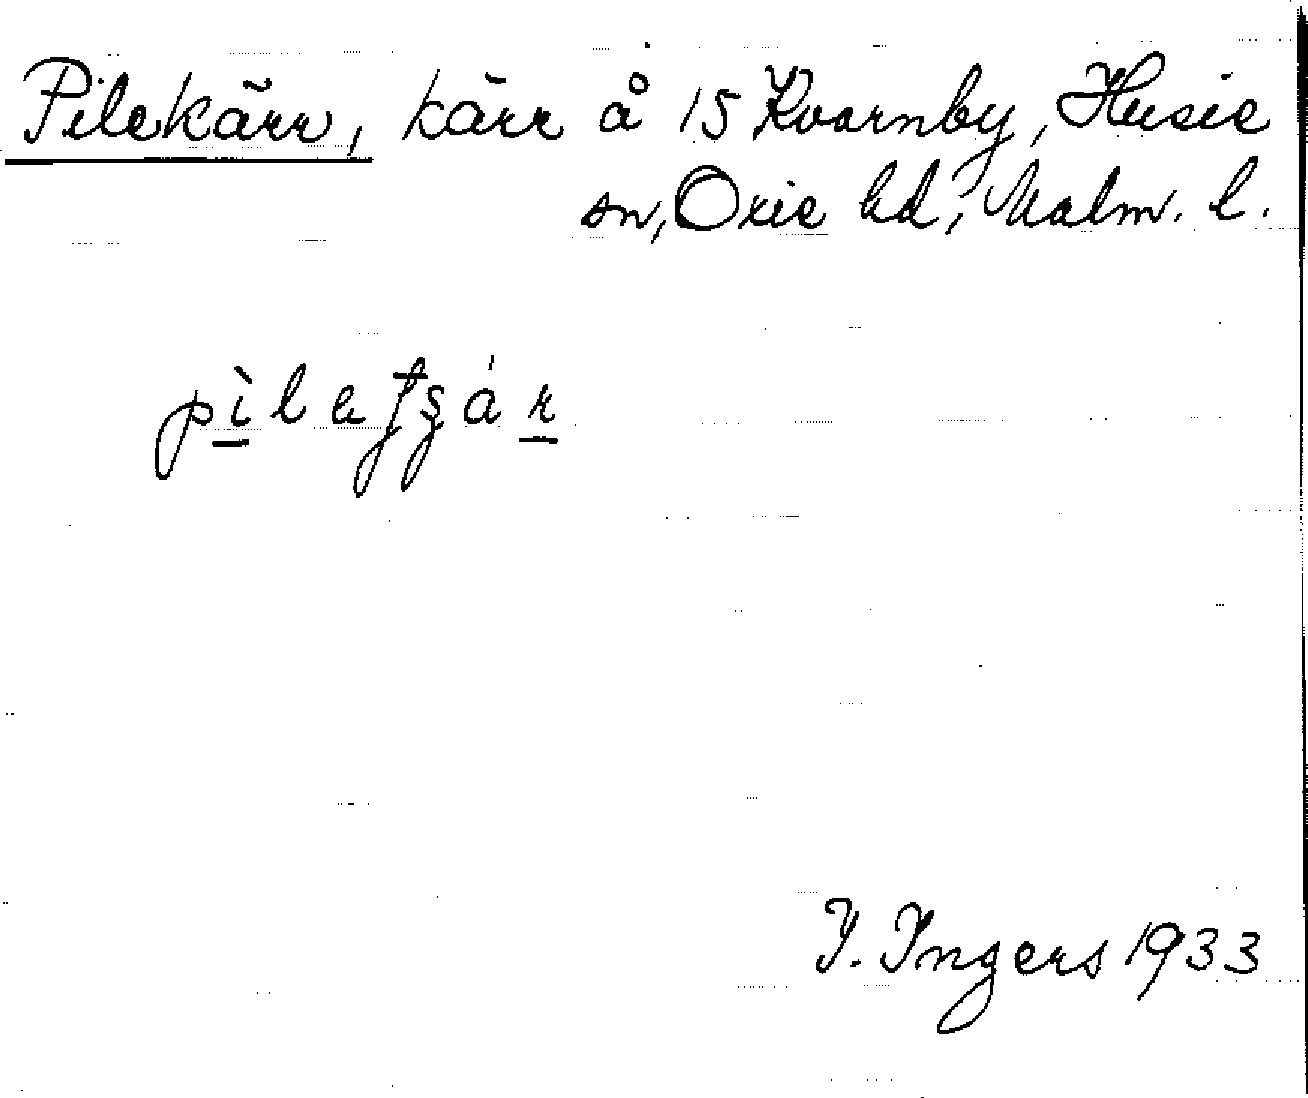 Pilekärr, kärr å 15 Kvarnby, Husie
sn, Oxie hd, Malm. l.
I. Ingers 1933